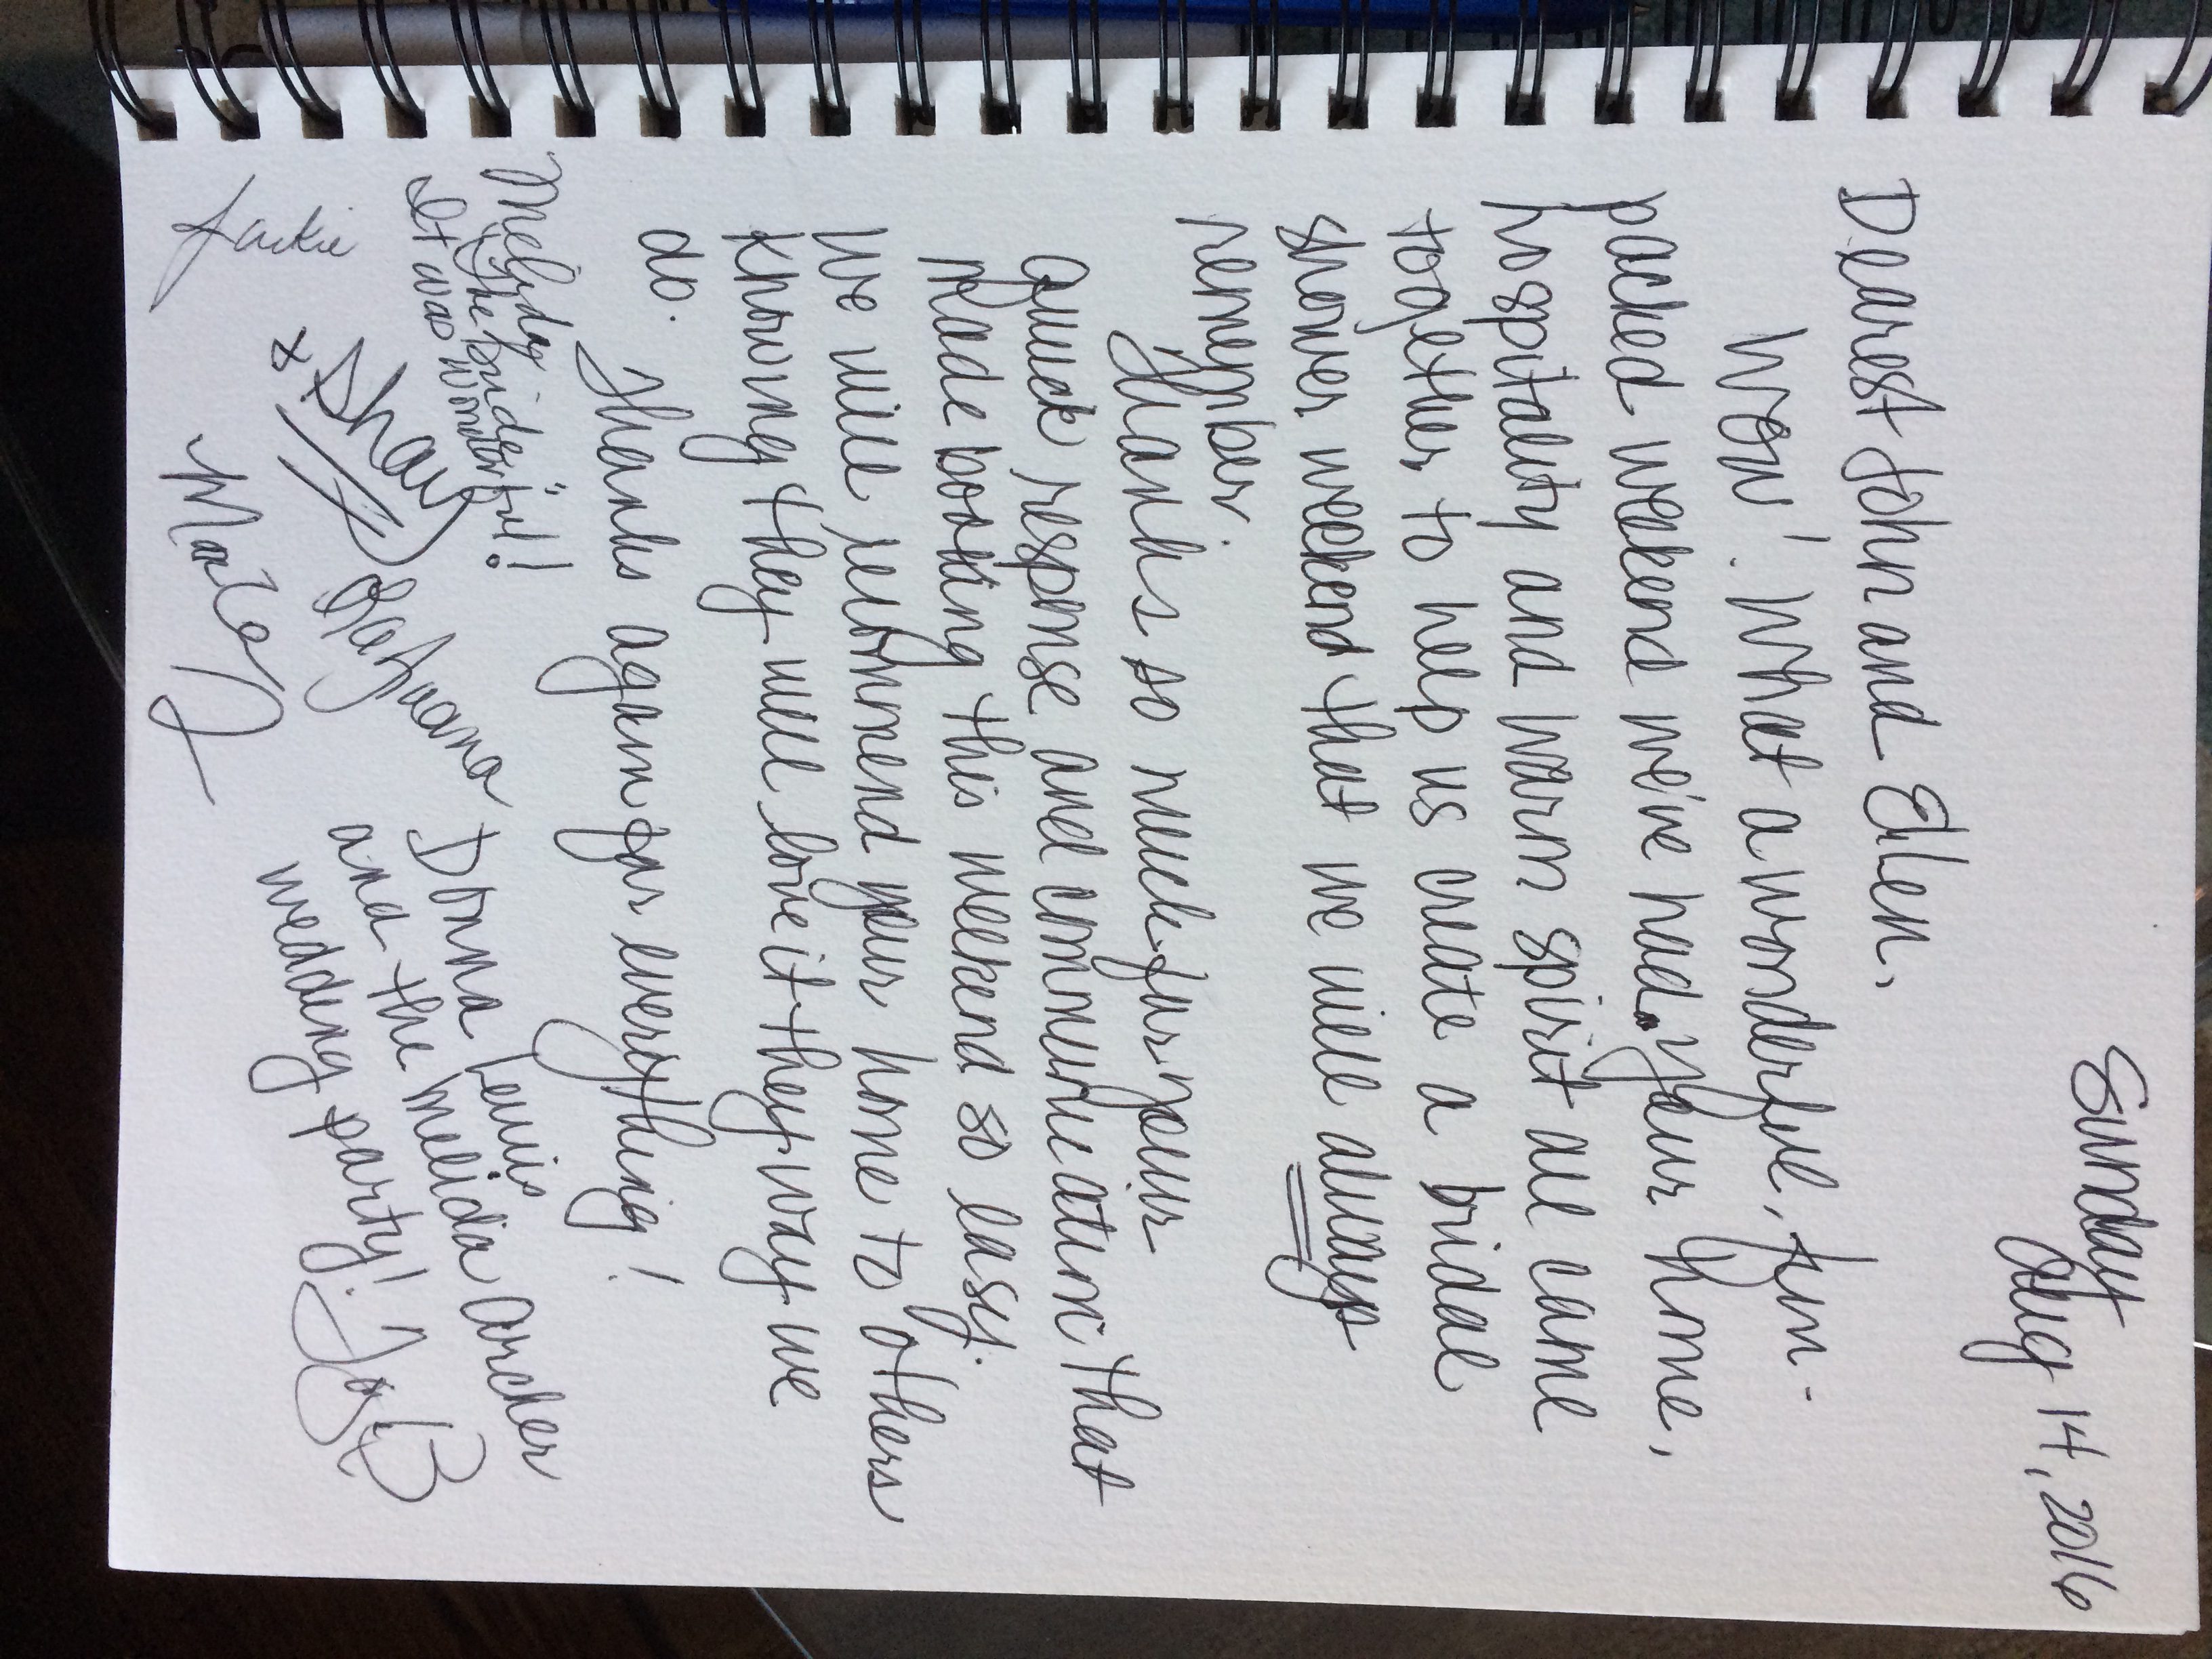 Sunday
Aug 14, 2016
Dearest John and Eilen,
Wow! What a wonderful, fun-
packed weekend we've had. Your home,
hospitality and warm spirit all came
together to help us create a bridal
shower weekend that we will always
remember.
Thanks so much for your
quick response and communication that
made booking this weekend so easy.
We will recommend your home to others
knowing they will love it they way we
do.
Thanks again for everything!
Melida
"The bride"
It was wonderful!!
Donna Lewis
and the Melida Archer
wedding party!
Shay
Jackie